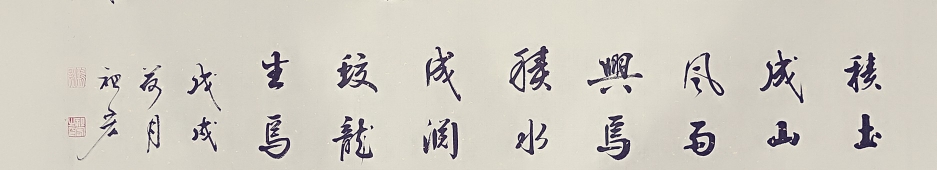 積土
成山
風雨
興焉
積水
成淵
蛟龍
生焉
戊戌
荷月